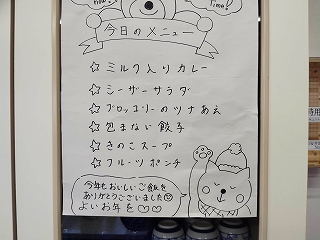 now!
Time!
今日のメニュー
☆ ミルク入りカレー
☆ シーザーサラダ
☆ ブロッコリーのツナあえ
☆ 包まない餃子
☆ きのこスープ
☆ フルーツポンチ
今年もおいしいご飯を
ありがとうございました
よいお年を♡♡